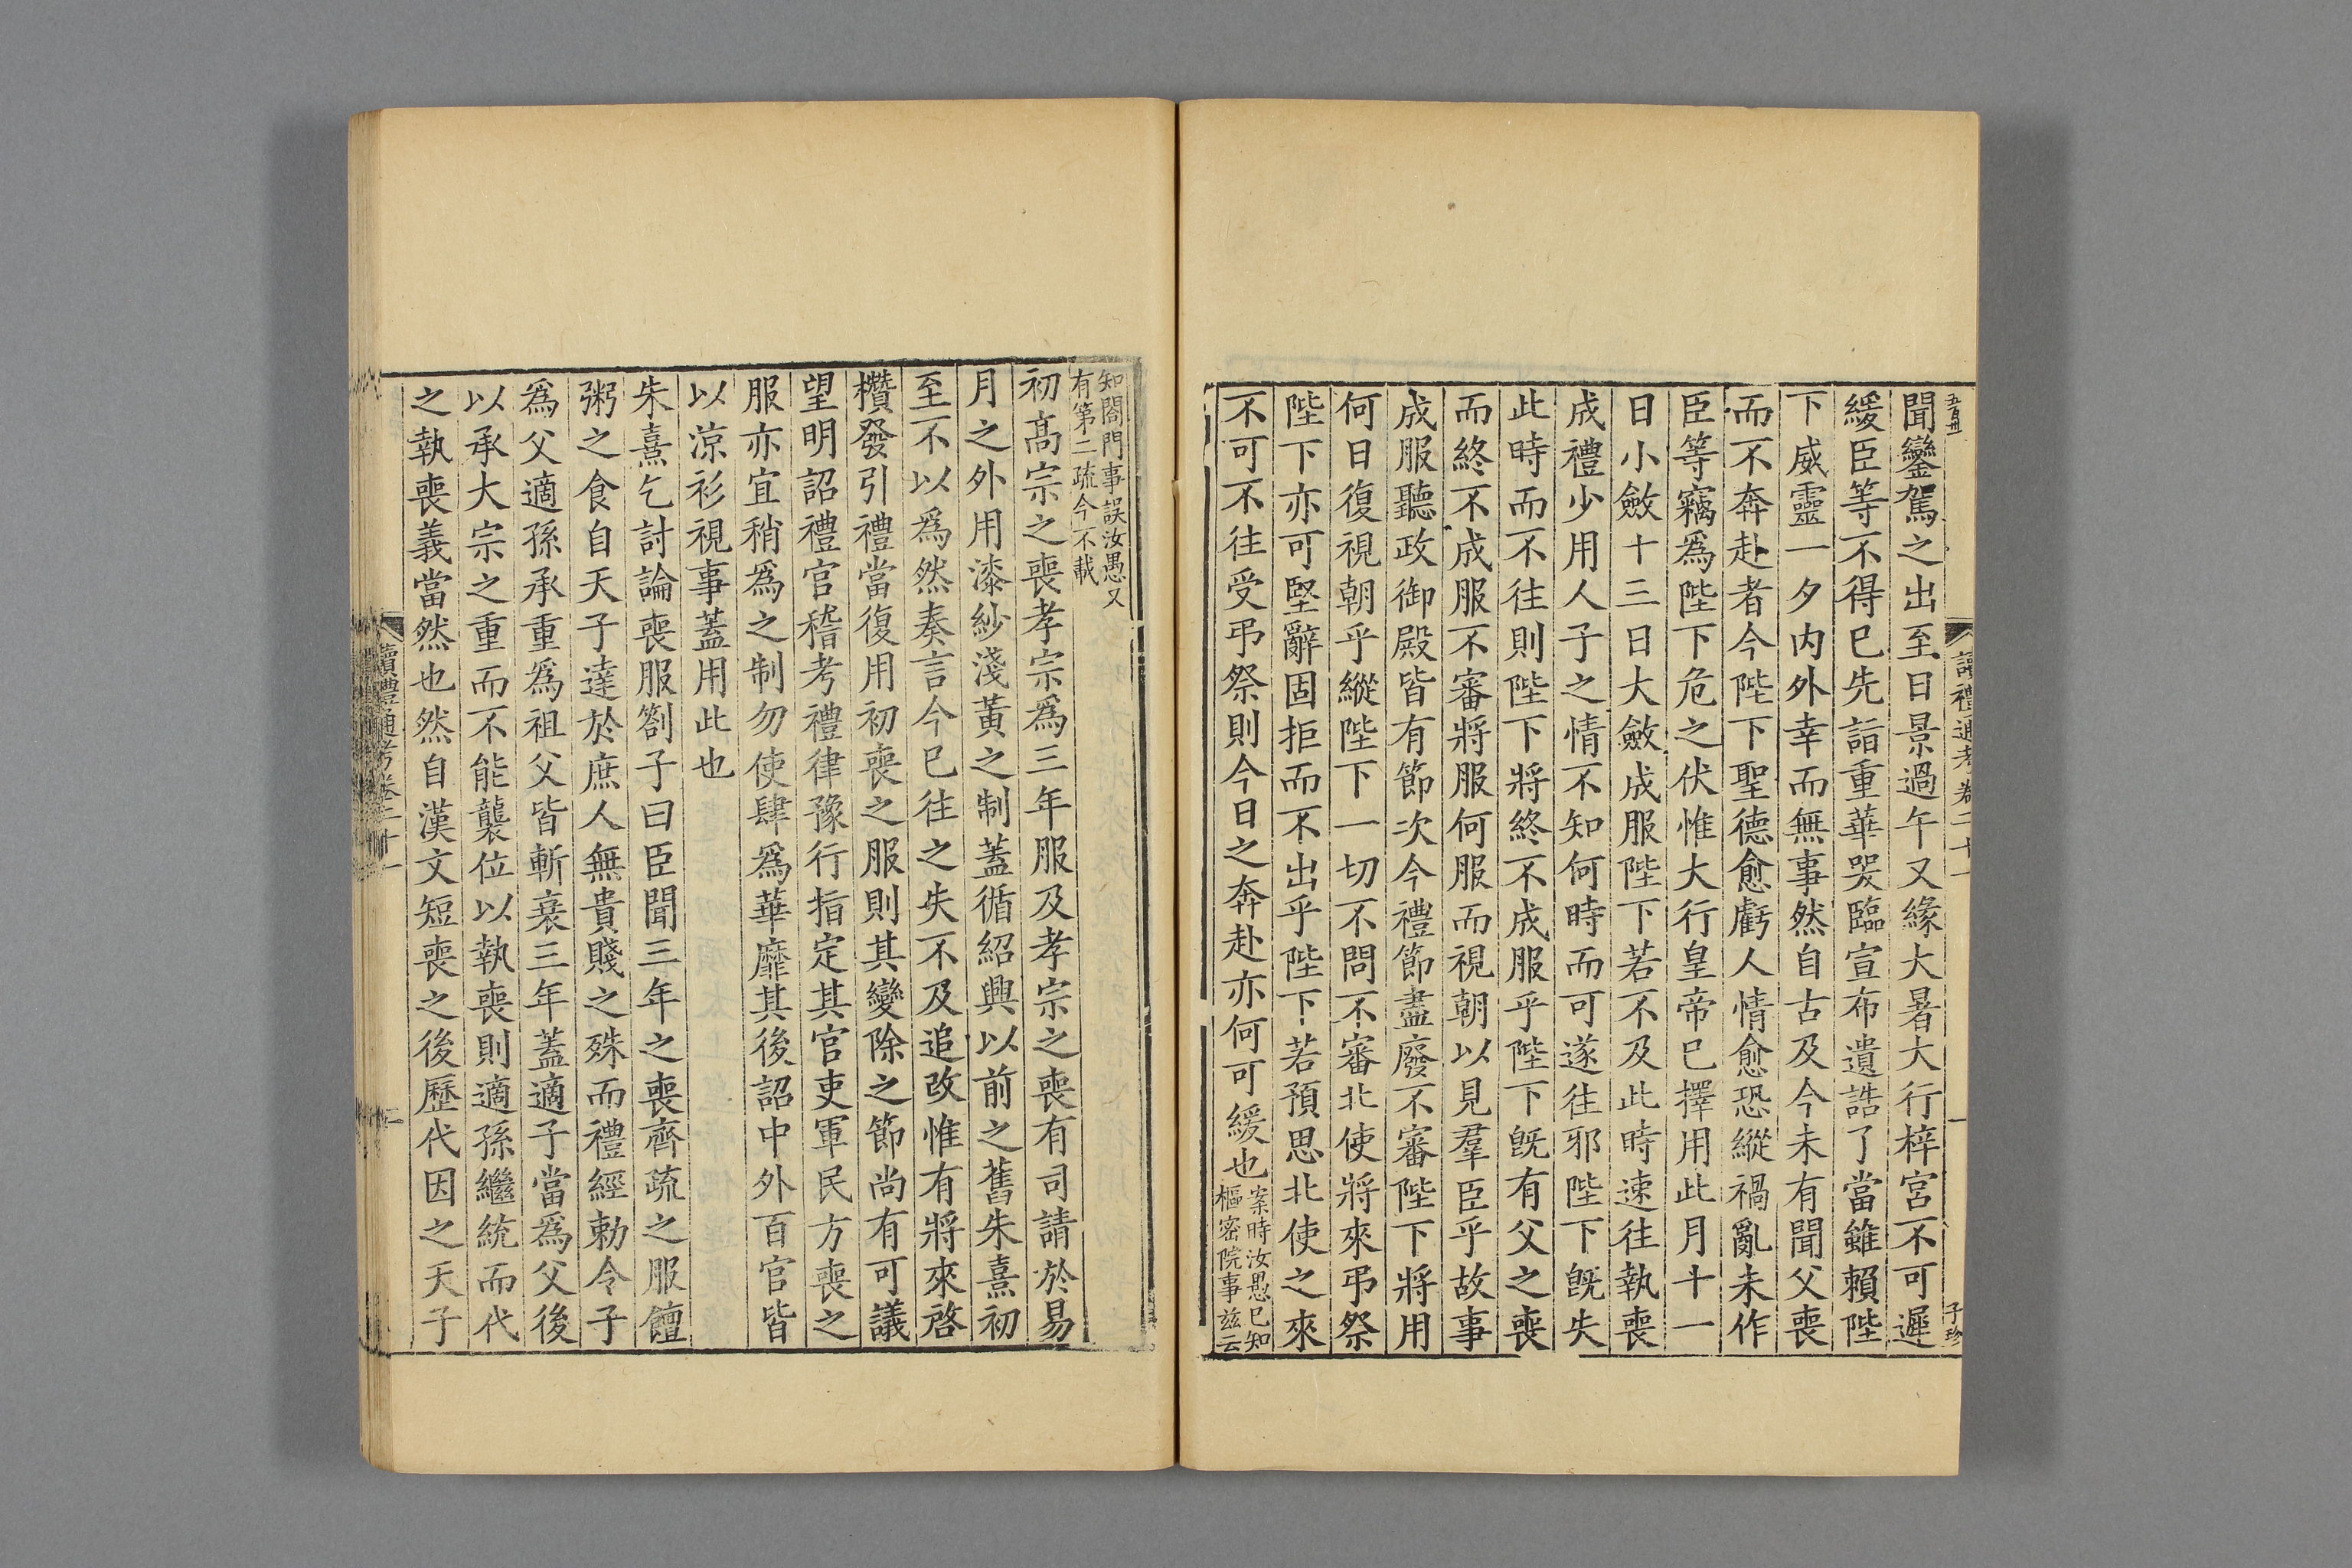 聞鑾駕之出至日景過午又緣大暑大行梓宮不可遲
緩臣等不得已先詣重華哭臨宣布遺誥了當雖賴陛
下威靈一夕内外幸而無事然自古及今未有聞父喪
而不奔赴者今陛下聖德愈虧人情愈恐縱禍亂未作
臣等竊爲陛下危之伏惟大行皇帝已擇用此月十一
日小斂十三日大斂成服陛下若不及此時速往執喪
成禮少用人子之情不知何時而可遂往邪陛下旣失
此時而不往則陛下將終不成服乎陛下旣有父之喪
而終不成服不審將服何服而視朝以見羣臣乎故事
成服聽政御殿皆有節次今禮節盡廢不審陛下將用
何日復視朝乎縱陛下一切不問不審北使將來弔祭
陛下亦可堅辭固拒而不出乎陛下若預思北使之來
不可不往受弔祭則今日之奔赴亦何可緩也案時汝愚已知
樞密院事兹云
讀禮通考卷二十一
一
子珍
知閤門事誤汝愚又
有第二疏今不載
初高宗之喪孝宗爲三年服及孝宗之喪有司請於易
月之外用漆紗淺黃之制蓋循紹興以前之舊朱熹初
至不以爲然奏言今已往之失不及追改惟有將來啓
欑發引禮當復用初喪之服則其變除之節尚有可議
望明詔禮官稽考禮律豫行指定其官吏軍民方喪之
服亦宜稍爲之制勿使肆爲華靡其後詔中外百官皆
以涼衫視事蓋用此也
朱熹乞討論喪服劄子曰臣聞三年之喪齊疏之服饘
粥之食自天子達於庶人無貴賤之殊而禮經勅令子
爲父適孫承重爲祖父皆斬衰三年蓋適子當爲父後
以承大宗之重而不能襲位以執喪則適孫繼統而代
之執喪義當然也然自漢文短喪之後歷代因之天子
讀禮通考卷二十一
二